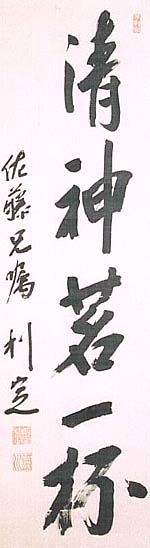 清神茗一杯
佐藤兄嘱 利定